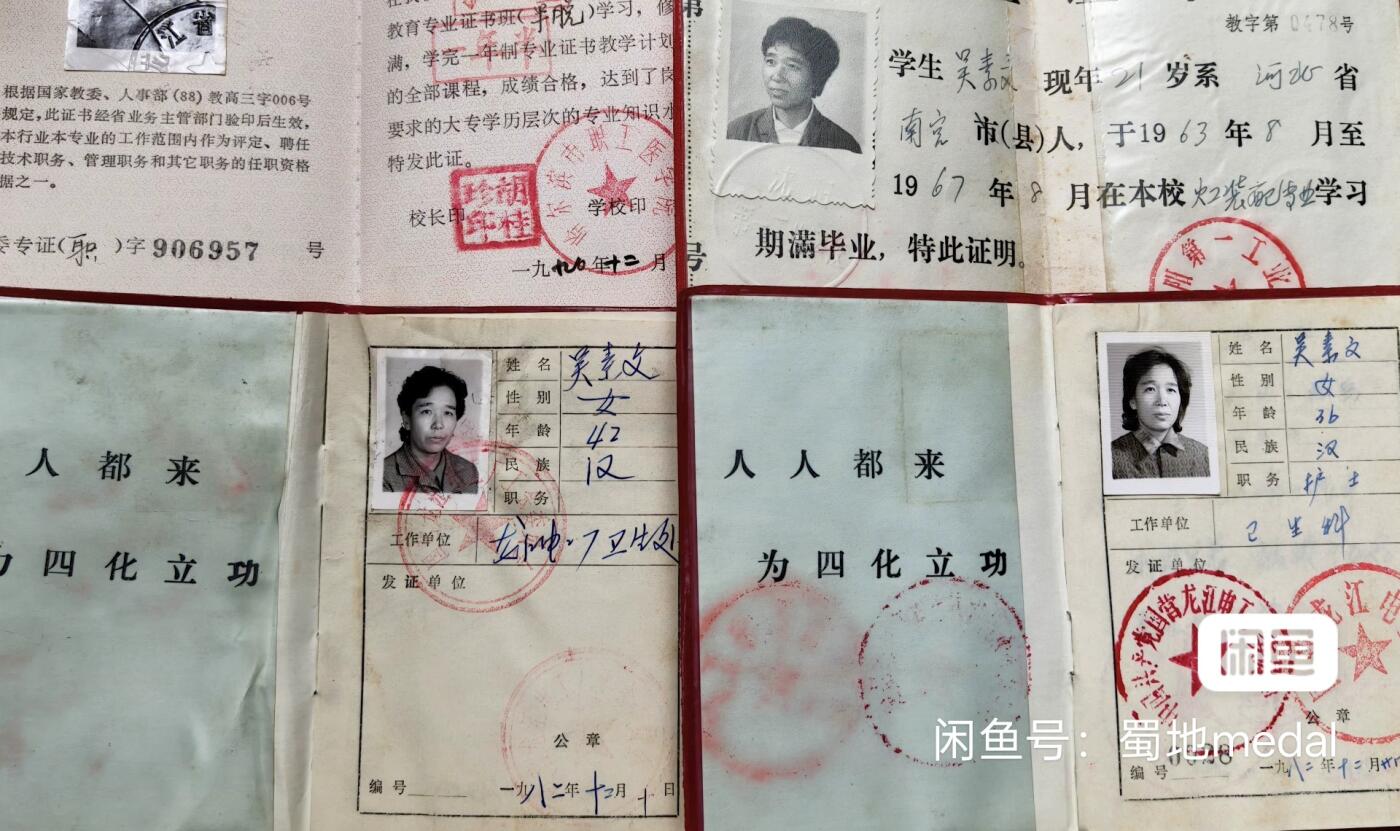 江省
根据国家教委、人事部(88)教高三字006号
规定,此证书经省业务主管部门验印后生效,
本行业本专业的工作范围内作为评定、聘任
技术职务、管理职务和其它职务的任职资格
据之一。
委专证(职)字906957 号
教育专业证书班(半脱)学习,修
满,学完一年制专业证书教学计划
的全部课程,成绩合格,达到了岗
要求的大专学历层次的专业知识水
特发此证。
校长印
胡桂珍印
学校印
市职工医学院
一九九〇年十二月
教字第 0478号
学生 吴素文 现年 21 岁系 河北 省
南宫 市(县)人, 于19 63 年 8 月至
19 67 年 8 月在本校 灯装配专业 学习
期满毕业, 特此证明。
第一工业
号
人人都来
为四化立功
姓名 吴素文
性别 女
年龄 42
民族 汉
职务
工作单位 龙江电工厂卫生处
发证单位
公章
编号
一九八二年十二月十日
人人都来
为四化立功
姓名 吴素文
性别 女
年龄 36
民族 汉
职务 护士
工作单位 卫生科
发证单位
国营龙江电工
龙江电
公章
编号
一九八二年十二月
闲鱼
闲鱼号:蜀地medal